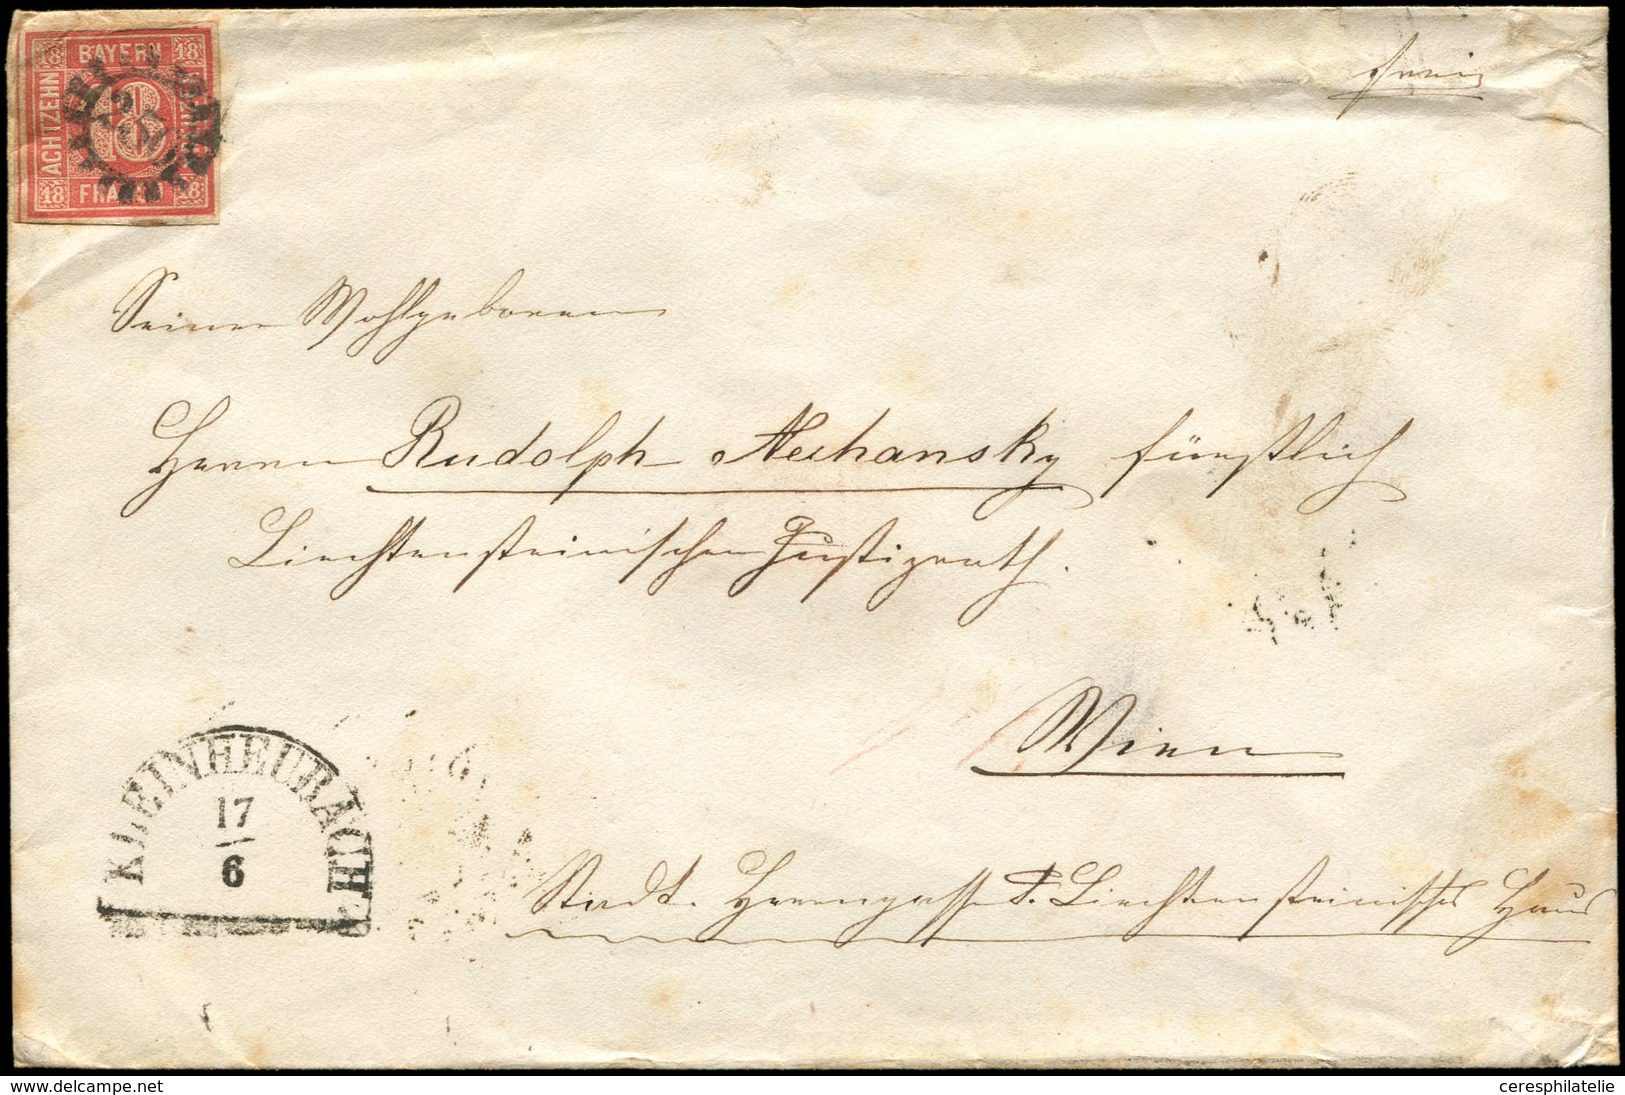 BAYERN
18 18
ACHTZEHN
18
18 18
frei
Seiner Wohlgeboren
Herrn Rudolph Nechansky fürstlich
Liechtensteinischen Justizrath.
Wien
KLEINHEUBACH
17
6
Stadt. Herrengasse F. Liechtensteinisches Haus
© delcampe.net
ceresphilatelie